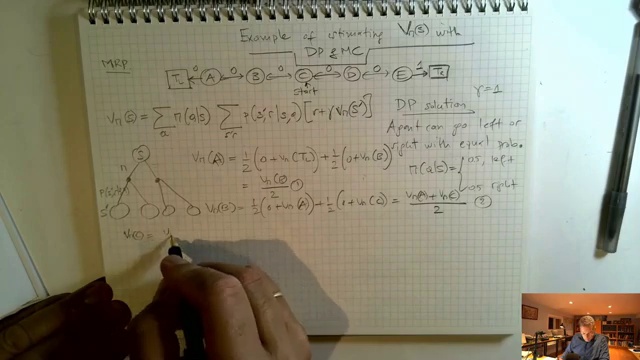 Example of estimating Vπ(s) with
DP & MC
MRP
T_L ←0 A ←0→ B ←0→ C ←0→ D ←0→ E →1 T_R
start
Vπ(s) = Σ_a π(a|s) Σ_{s'r} p(s',r|s,a) [r + γ Vπ(s')]
DP solution γ=1
Agent can go left or
right with equal prob.
π(a|s) = { 0.5, left
0.5 right
S
π
S'
Vπ(A) = 1/2 (0 + Vπ(T_L)) + 1/2 (0 + Vπ(B))
= Vπ(B)/2 ①
Vπ(B) = 1/2 (0 + Vπ(A)) + 1/2 (0 + Vπ(C)) = (Vπ(A) + Vπ(C))/2 ②
Vπ(C) =